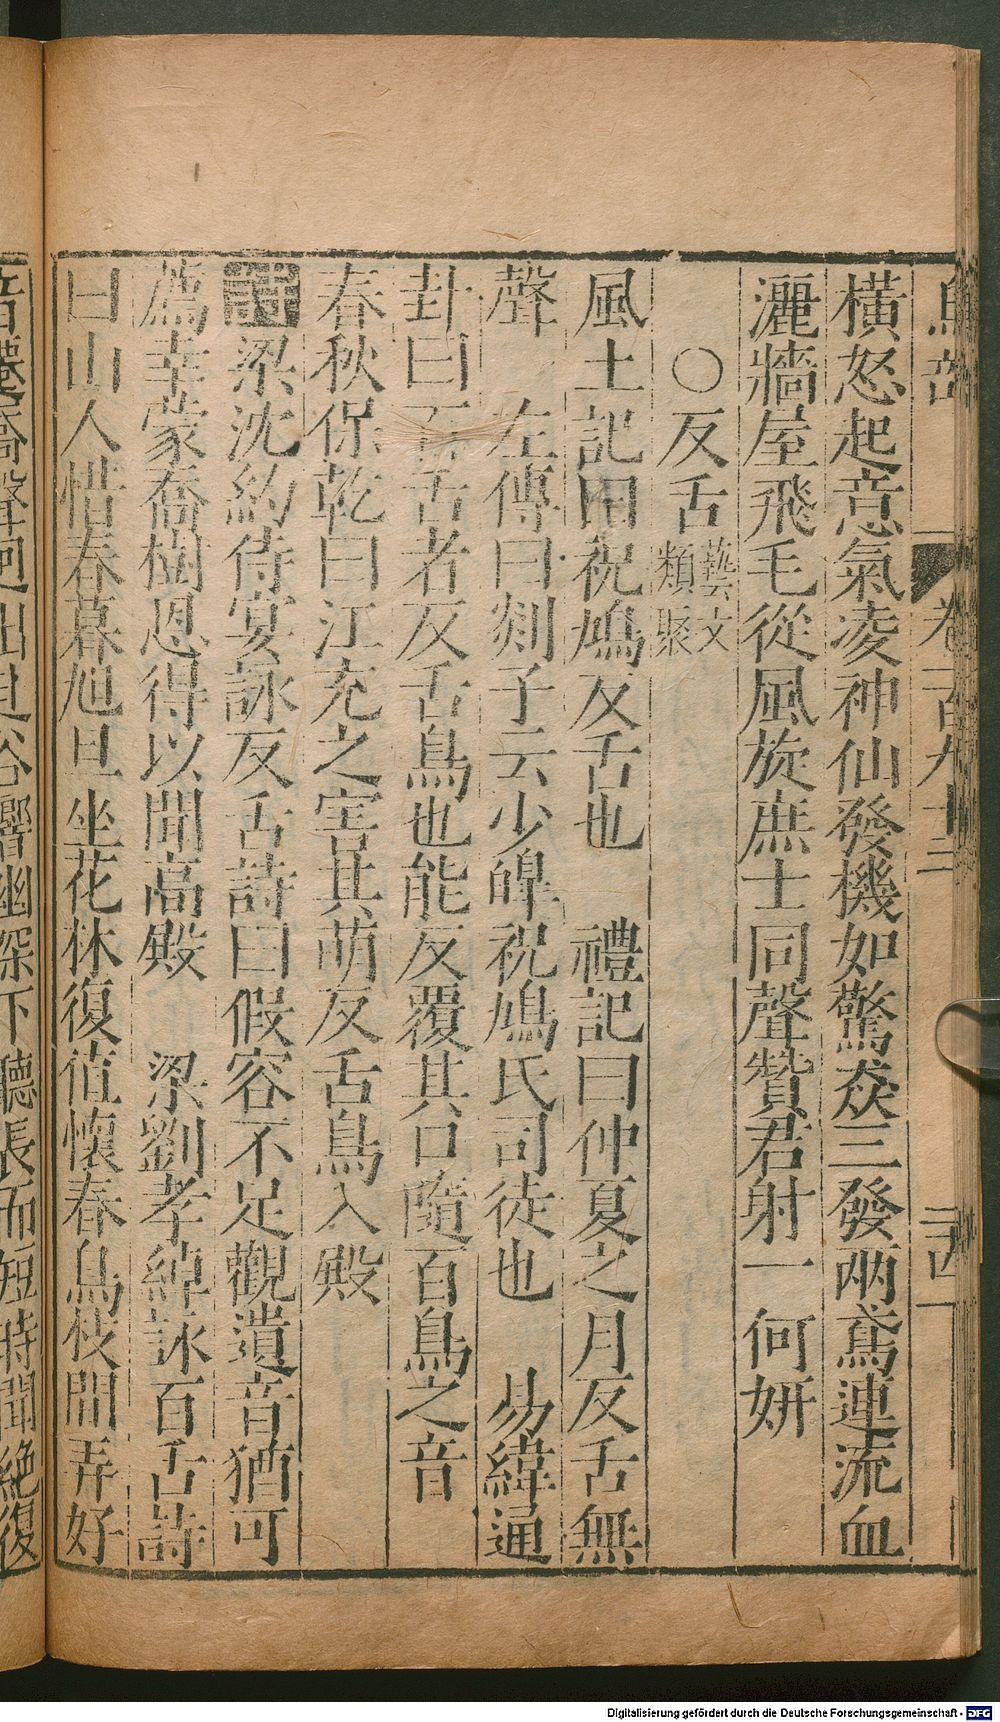 鳥部 卷一百九十三 三四
橫怒起意氣凌神仙發機如驚猋三發兩鳶連流血
灑牆屋飛毛從風旋庶士同聲贊君射一何妍
〇反舌藝文類聚
風土記曰祝鳩反舌也 禮記曰仲夏之月反舌無
聲 左傳曰剡子云少皡祝鳩氏司徒也 易緯通
卦曰百舌者反舌鳥也能反覆其口隨百鳥之音
春秋保乾曰江充之害其萌反舌鳥入殿
詩梁沈約侍宴詠反舌詩曰假容不足觀遺音猶可
薦幸蒙喬樹恩得以聞高殿 梁劉孝綽詠百舌詩
曰山人惜春暮旭旦坐花林復值懷春鳥枝間弄好
音遷喬聲迥出赴谷響幽深下聽長而短時聞絕復
Digitalisierung gefördert durch die Deutsche Forschungsgemeinschaft - DFG